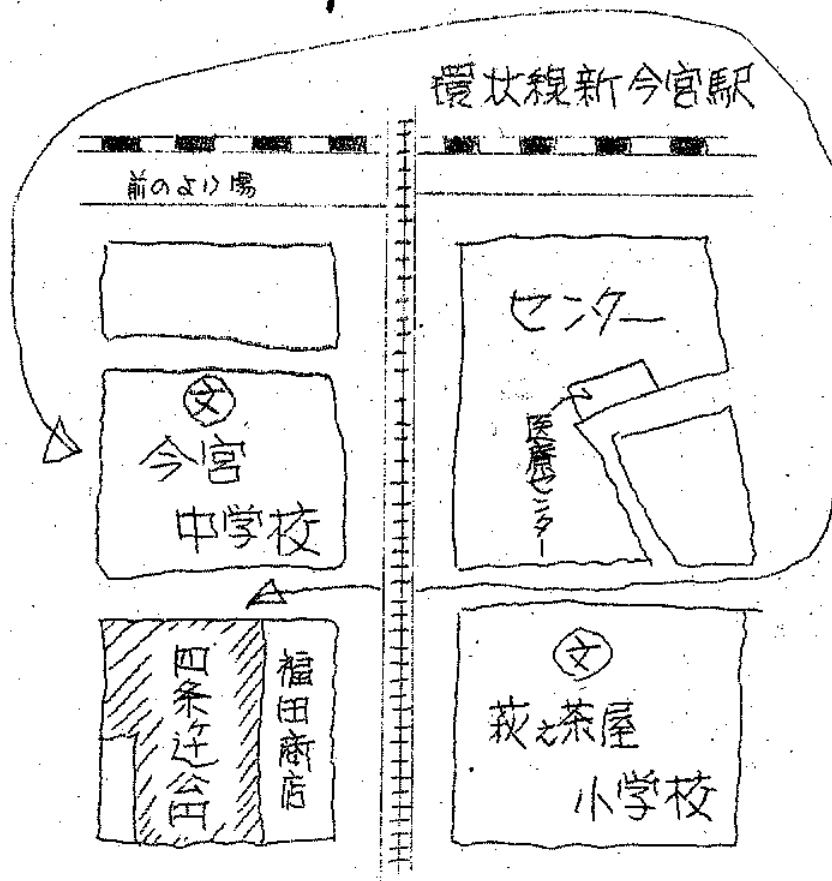 環状線新今宮駅
前のより場
センター
医療センター
文
今宮
中学校
四条辻公円
福田商店
文
萩之茶屋
小学校